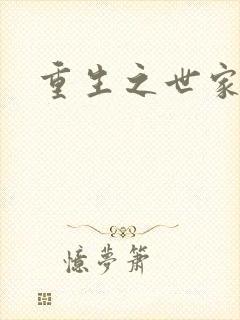 重生之世家
憶夢蕭